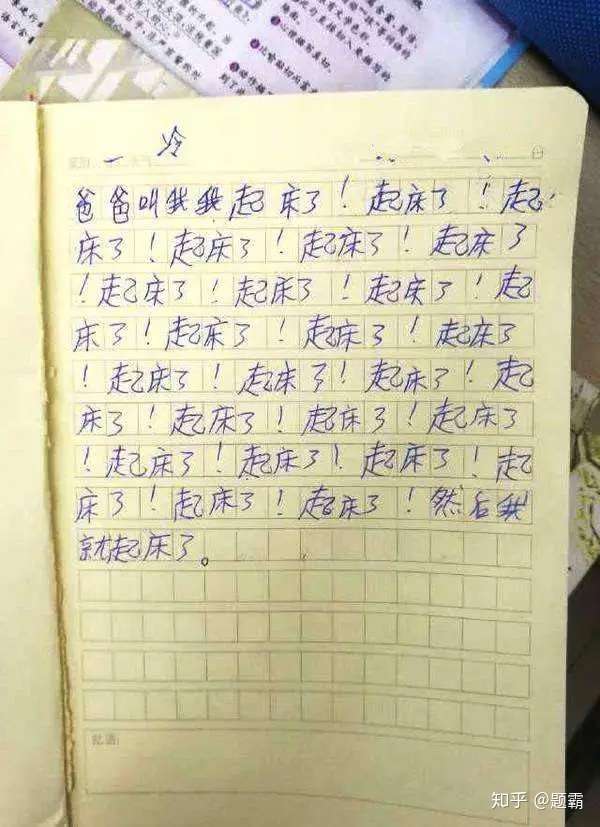 一 冷
爸爸叫我我起床了！起床了！起
床了！起床了！起床了！起床了
！起床了！起床了！起床了！起
床了！起床了！起床了！起床了
！起床了！起床了！起床了！起
床了！起床了！起床了！起床了
！起床了！起床了！起床了！起
床了！起床了！起床了！然后我
就起床了。
批语:
知乎 @题霸